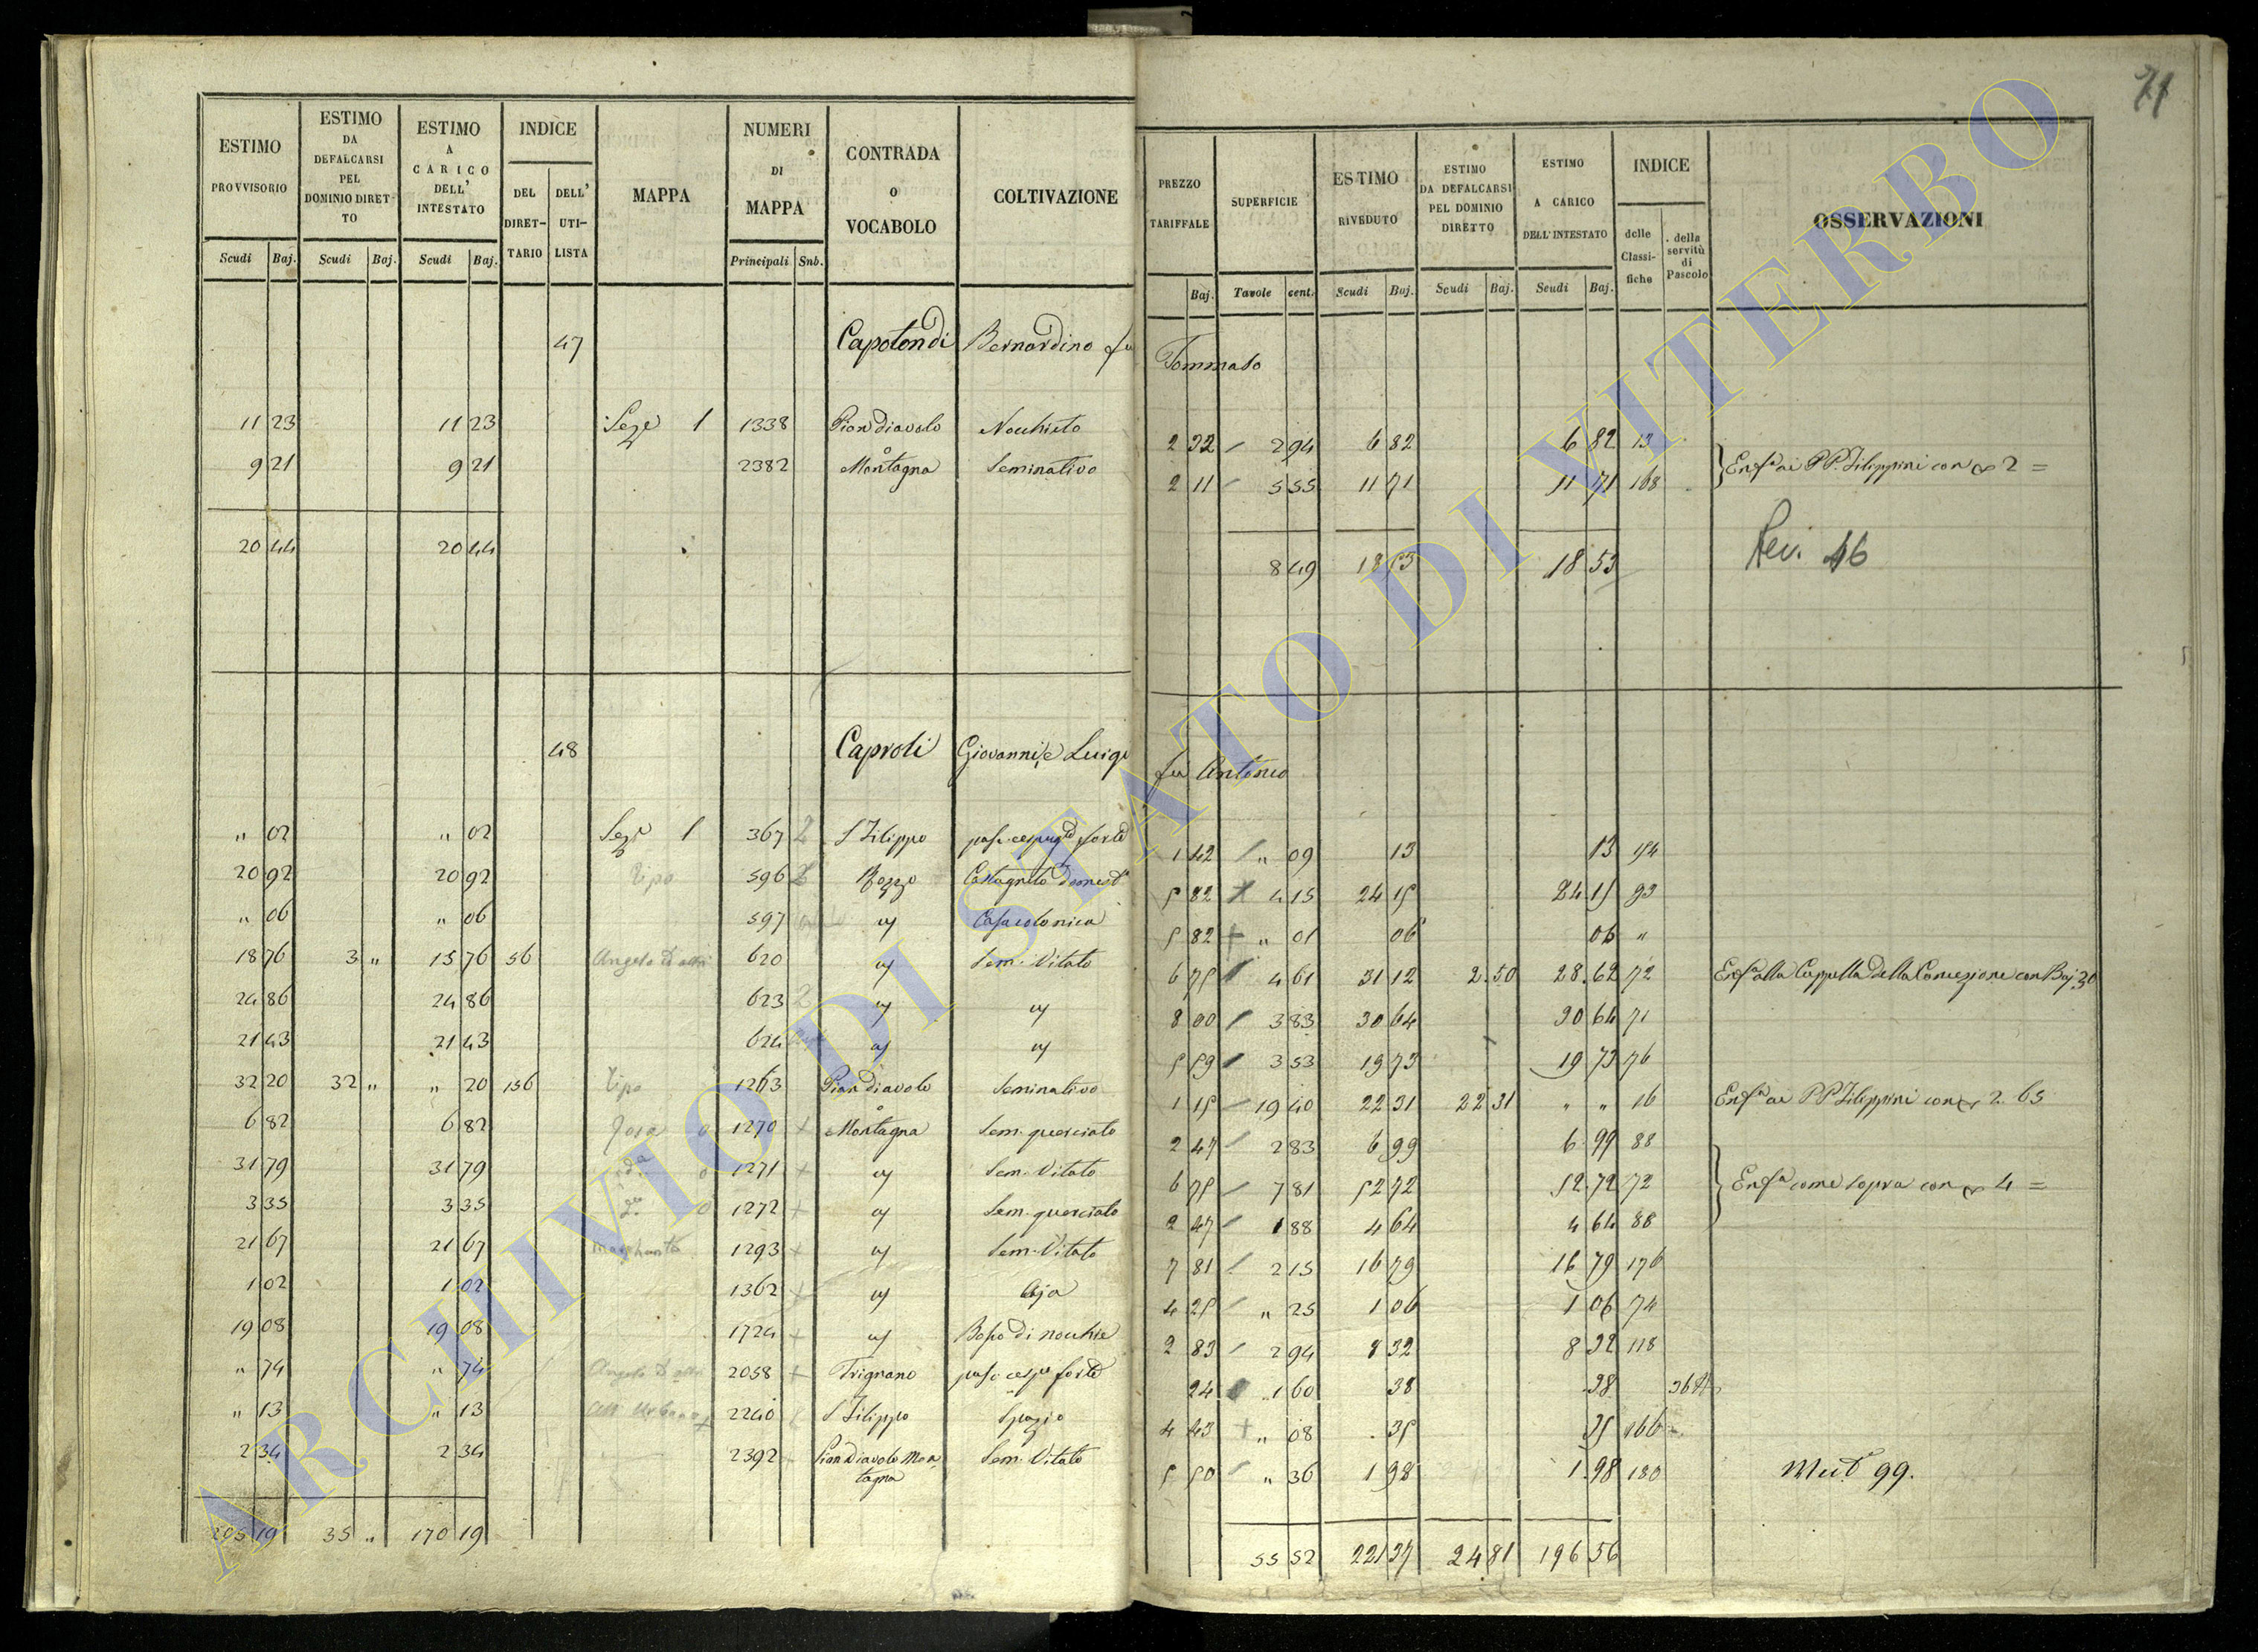 71
ESTIMO PROVVISORIO | ESTIMO DA DEFALCARSI PEL DOMINIO DIRETTO | ESTIMO A CARICO DELL' INTESTATO | INDICE | MAPPA | NUMERI DI MAPPA | CONTRADA O VOCABOLO | COLTIVAZIONE | PREZZO TARIFFALE | SUPERFICIE | ESTIMO RIVEDUTO | ESTIMO DA DEFALCARSI PEL DOMINIO DIRETTO | ESTIMO A CARICO DELL'INTESTATO | INDICE | OSSERVAZIONI
Scudi | Baj. | Scudi | Baj. | Scudi | Baj. | DEL DIRET-TARIO | DELL' UTI-LISTA | Principali | Snb. | Baj. | Tavole | cent. | Scudi | Baj. | Scudi | Baj. | Scudi | Baj. | delle Classi-fiche | della servitù di Pascolo
47 Capotondi Bernardino fu Tommaso
11 23 | 11 23 | Seze 1 | 1338 | Piandiavolo | Nochieto | 2 32 | 2 94 | 6 82 | 6 82 | 13
9 21 | 9 21 | 2382 | Montagna | Seminativo | 2 11 | 5 55 | 11 71 | 11 71 | 168 | Enfa ai PP. Filippini con 2 =
20 44 | 20 44 | 8 49 | 18 53 | 18 53 | 46
48 Caproli Giovanni, e Luigi fu Antonio
" 02 | " 02 | Seze 1 | 367 2 | S Filippo | 1 42 | " 09 | 13 | 13 | 154
20 92 | 20 92 | Tipo | 596 | Pozzo | Castagneto domesto | 5 82 | 4 15 | 24 15 | 24 15 | 93
" 06 | " 06 | 597 | " | Casa colonica | 5 82 | " 01 | 06 | 06 | "
18 76 | 3 " | 15 76 | 56 | Angelo | 620 | " | Sem. Vitato | 6 75 | 4 61 | 31 12 | 2.50 | 28.62 | 72 | Enfa alla Cappella della Concezione con Baj. 30
24 86 | 24 86 | 623 2 | " | " | 8 00 | 3 83 | 30 64 | 30 64 | 71
21 43 | 21 43 | 624 | " | " | 5 59 | 3 53 | 19 73 | 19 73 | 76
32 20 | 32 " | " 20 | 156 | Tipo | 1263 | Piandiavolo | Seminativo | 1 15 | 19 40 | 22 31 | 22 31 | " " | 16 | Enfa ai PP Filippini con 2. 65
6 82 | 6 82 | 1270 | Montagna | Sem. querciato | 2 47 | 2 83 | 6 99 | 6 99 | 88
31 79 | 31 79 | 1271 | " | Sem. Vitato | 6 75 | 7 81 | 52 72 | 52.72 | 72 | Enfa come sopra con 4 =
3 35 | 3 35 | 1272 | " | Sem. querciato | 2 47 | 1 88 | 4 64 | 4 64 | 88
21 67 | 21 67 | 1293 | " | Sem. Vitato | 7 81 | 2 15 | 16 79 | 16 79 | 176
1 02 | 1 02 | 1362 | " | Aja | 4 25 | " 25 | 1 06 | 1 06 | 74
19 08 | 19 08 | 1724 | " | Bosco di nochie | 2 83 | 2 94 | 8 32 | 8 32 | 118
" 74 | " 74 | Angelo | 2058 | Trignano | 24 | 1 60 | 38 | 38
" 13 | " 13 | 2240 | S Filippo | Spazio | 4 43 | " 08 | 35 | 35 | 166
2 34 | 2 34 | 2392 | Piandiavolo Montagna | Sem. Vitato | 5 50 | " 36 | 1 98 | 1.98 | 180 | 99.
205 19 | 35 " | 170 19 | 55 52 | 221 37 | 24 81 | 196 56
ARCHIVIO DI STATO DI VITERBO